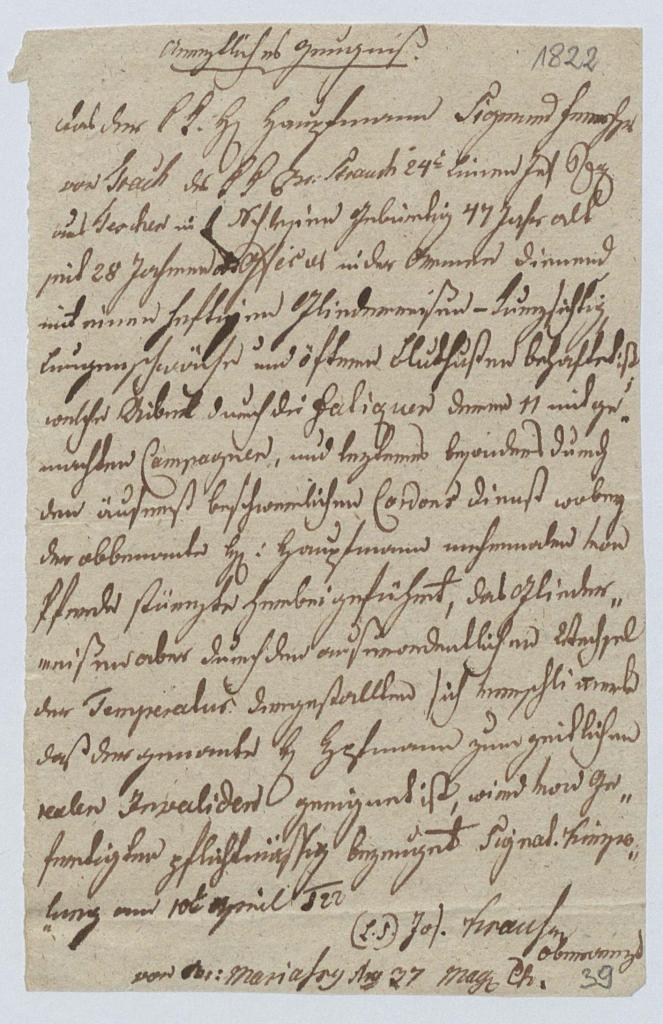 Aerztliches Zeugniß.
1822
das der k k. H. Hauptmann Sigmund
von des k k Br: Strauch 24t Linien Inf Rg
aus in Schlesien gebürtig 47 Jahr alt
seit 28 Jahren als Officier in der Armee dienend
mit einen heftigen Gliederreisen - kurzsichtig
Lungenschwäche und öfteren Bluthusten behaftet ist
welche Uibel durch die Fatiquen deren 11 mitge-
machten Campagnen, und lezteres besonders durch
den äuserst beschwerlichen Cordons Dienst wobey
der obbenante H: Hauptmann mehrmalen von
Pferde stürzte herbeigeführt, das Glieder-
reisen aber durch den auserordentlichen Wechsel
der Temperatur dergestallten sich verschlimmert
daß der genante H Hptmann zum zeitlichen
realen Invaliden geeignet ist, wird von Ge-
fertigten pflichtmässig bezeuget Signat. Kimpo-
lung am 10t April 822
(L.S.) Jos. Kraus
Oberarzt
von Br: Mariassy Rg 37 Mag Ch.
39